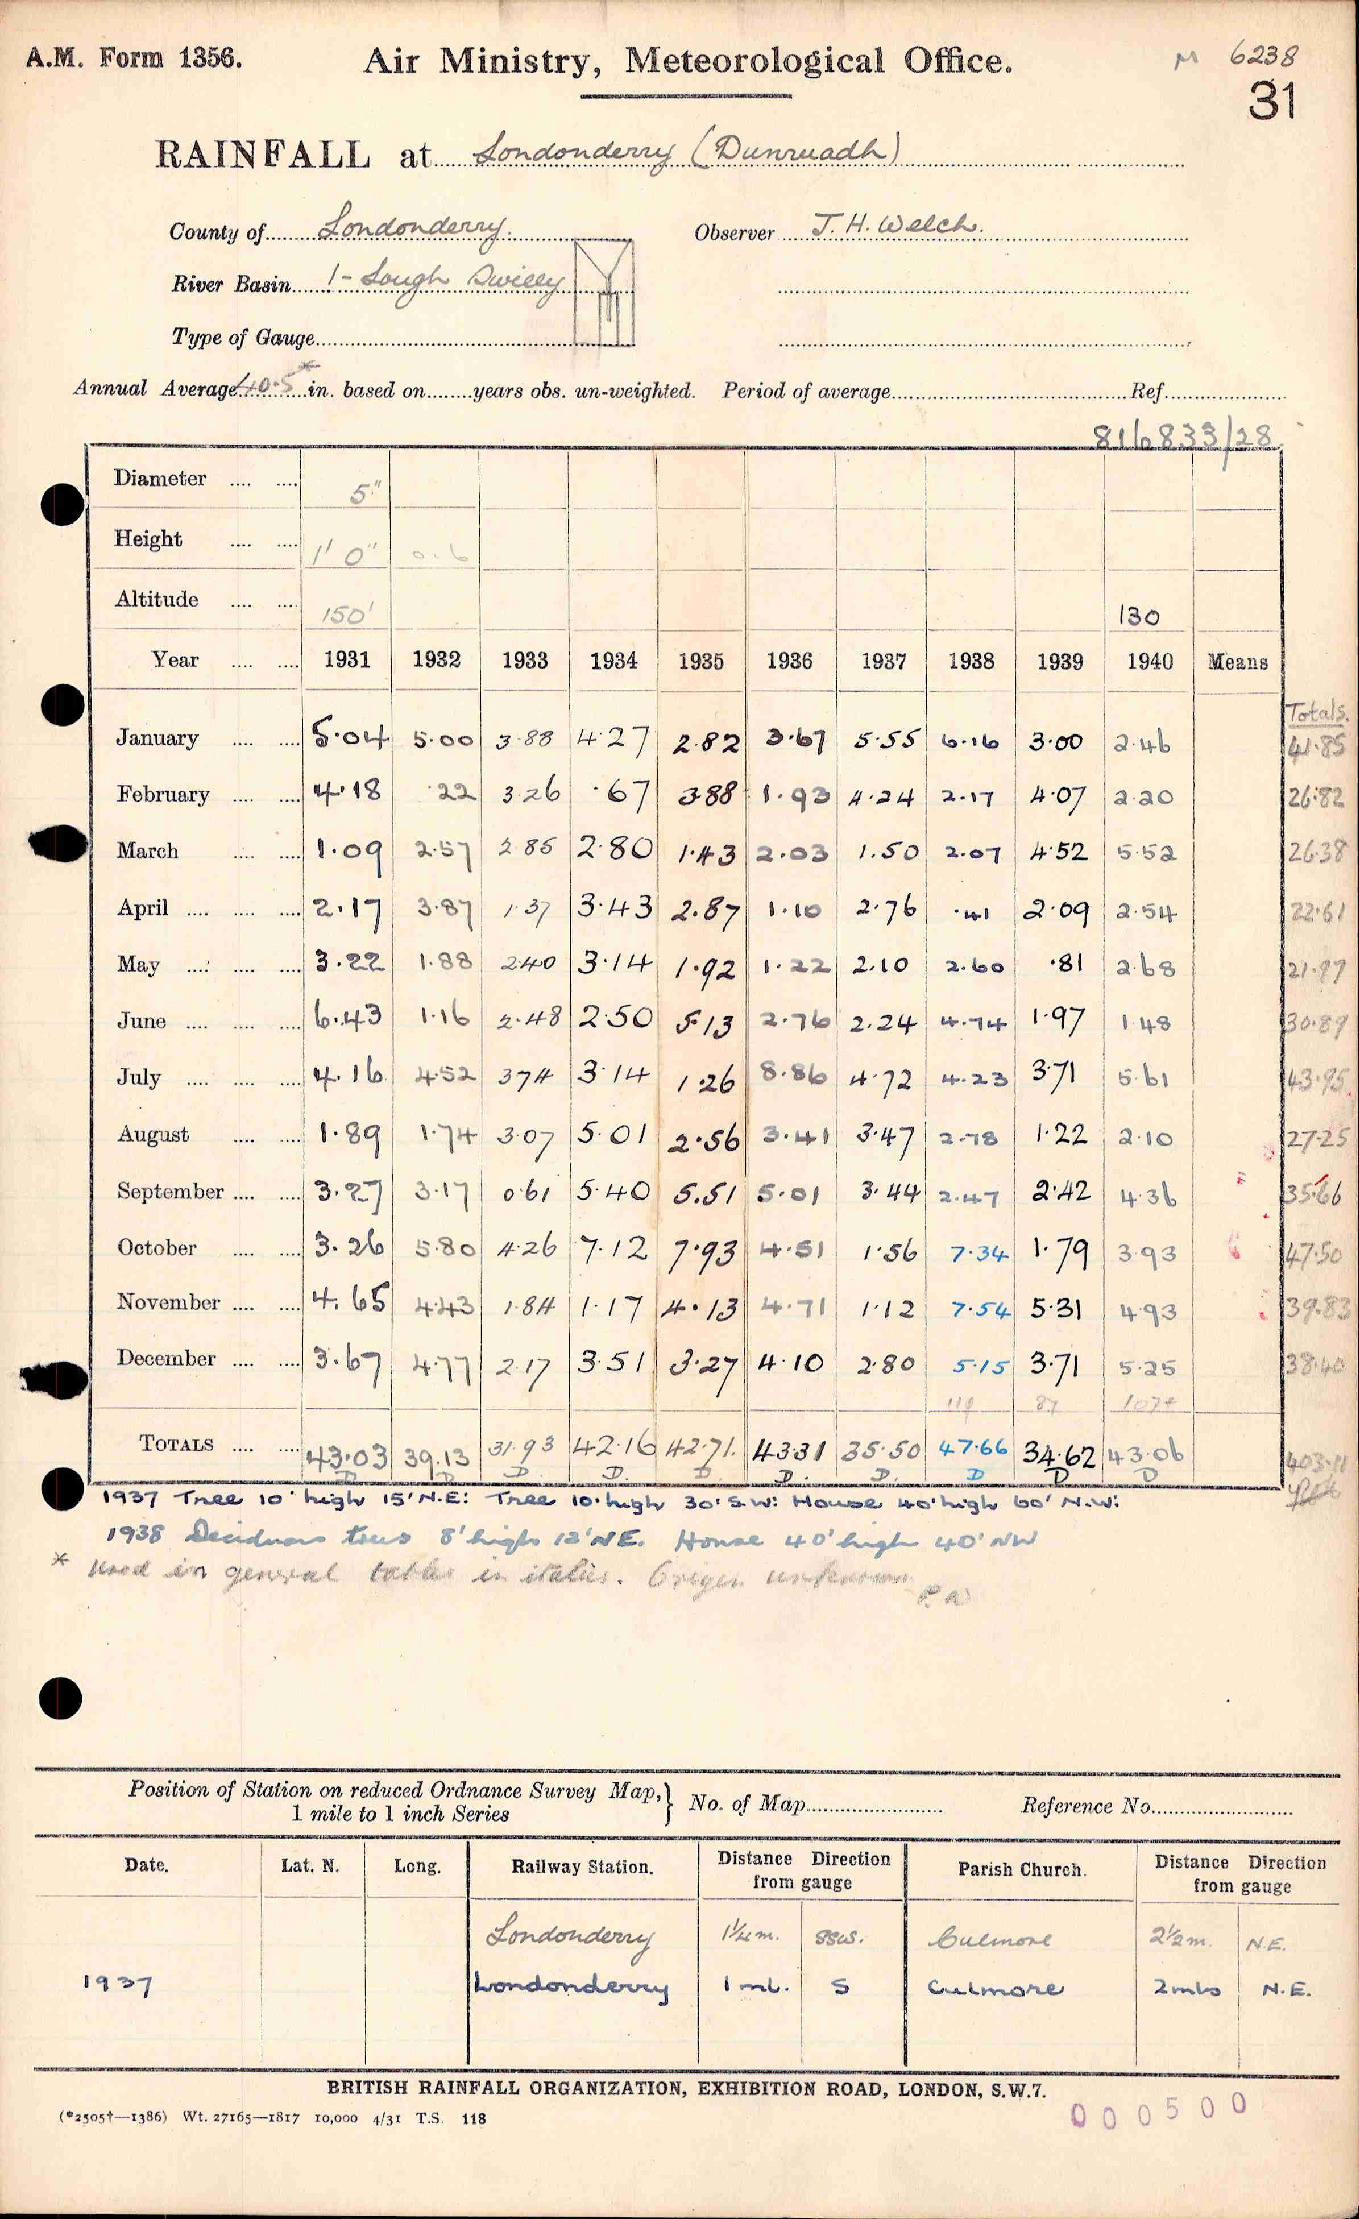 A.M. Form 1356.
Air Ministry, Meteorological Office.
M 6238
31
RAINFALL at Londonderry (Dunruadh)
County of Londonderry. Observer J. H. Welch.
River Basin 1 - Lough Swilly
Type of Gauge
Annual Average 40.5* in. based on years obs. un-weighted. Period of average Ref.
816833/28
Diameter 5"
Height 1' 0" 0.6
Altitude 150' 130
Year 1931 1932 1933 1934 1935 1936 1937 1938 1939 1940 Means Totals.
January 5.04 5.00 3.88 4.27 2.82 3.67 5.55 6.16 3.00 2.46 41.85
February 4.18 .22 3.26 .67 3.88 1.93 4.24 2.17 4.07 2.20 26.82
March 1.09 2.57 2.85 2.80 1.43 2.03 1.50 2.07 4.52 5.52 26.38
April 2.17 3.87 1.37 3.43 2.87 1.10 2.76 .41 2.09 2.54 22.61
May 3.22 1.88 2.40 3.14 1.92 1.22 2.10 2.60 .81 2.68 21.97
June 6.43 1.16 2.48 2.50 5.13 2.76 2.24 4.74 1.97 1.48 30.89
July 4.16 4.52 3.74 3.14 1.26 8.86 4.72 4.23 3.71 5.61 43.95
August 1.89 1.74 3.07 5.01 2.56 3.41 3.47 2.78 1.22 2.10 27.25
September 3.27 3.17 0.61 5.40 5.51 5.01 3.44 2.47 2.42 4.36 35.66
October 3.26 5.80 4.26 7.12 7.93 4.51 1.56 7.34 1.79 3.93 47.50
November 4.65 4.43 1.84 1.17 4.13 4.71 1.12 7.54 5.31 4.93 39.83
December 3.67 4.77 2.17 3.51 3.27 4.10 2.80 5.15 3.71 5.25 38.40
87 107+
TOTALS 43.03 39.13 31.93 42.16 42.71 43.31 35.50 47.66 34.62 43.06 403.11
D D D D D D D D D D
1937 Tree 10' high 15' N.E: Tree 10' high 30' S.W: House 40' high 60' N.W:
1938 Deciduous trees 8' high 12' NE. House 40' high 40' NW
* Used in general table in italics. Origin unknown
Position of Station on reduced Ordnance Survey Map, 1 mile to 1 inch Series } No. of Map Reference No.
Date. Lat. N. Long. Railway Station. Distance Direction from gauge Parish Church. Distance Direction from gauge
Londonderry 1¼m. SSW. Culmore 2½m. N.E.
1937 Londonderry 1 ml. S Culmore 2 mls N.E.
BRITISH RAINFALL ORGANIZATION, EXHIBITION ROAD, LONDON, S.W.7.
(*2505†—1386) Wt. 27165—1817 10,000 4/31 T.S. 118
000500